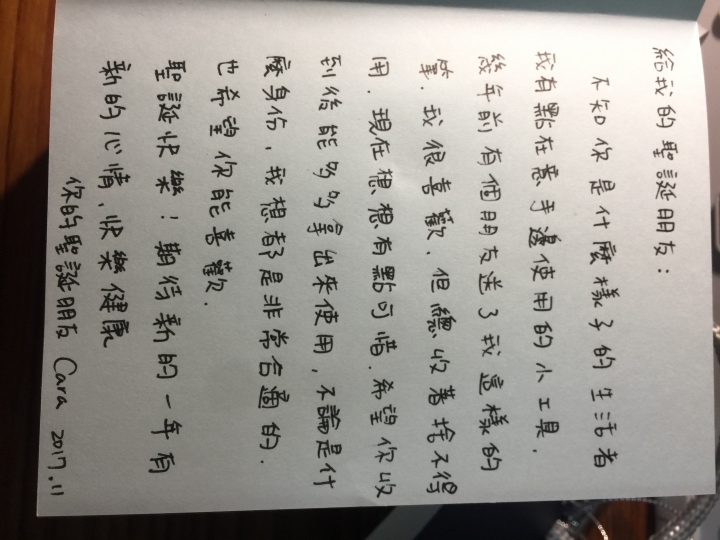 給我的聖誕朋友：
不知你是什麼樣子的生活者
我有點在意手邊使用的小工具．
幾年前有個朋友送了我這樣的
筆．我很喜歡、但總收著捨不得
用．現在想想有點可惜．希望你收
到後能多多拿出來使用，不論是什
麼身份，我想都是非常合適的．
也希望你能喜歡．
聖誕快樂！期待新的一年有
新的心情、快樂健康
你的聖誕朋友 Cara 2017.11